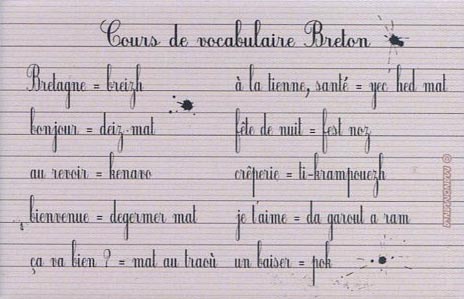 Cours de vocabulaire Breton
Bretagne = breizh
bonjour = deiz-mat
au revoir = kenavo
bienvenue = degermer mat
ça va bien ? = mat au traoù
à la tienne, santé = yec' hed mat
fête de nuit = fest noz
crêperie = ti-krampouezh
je t'aime = da garout a ram
un baiser = pok